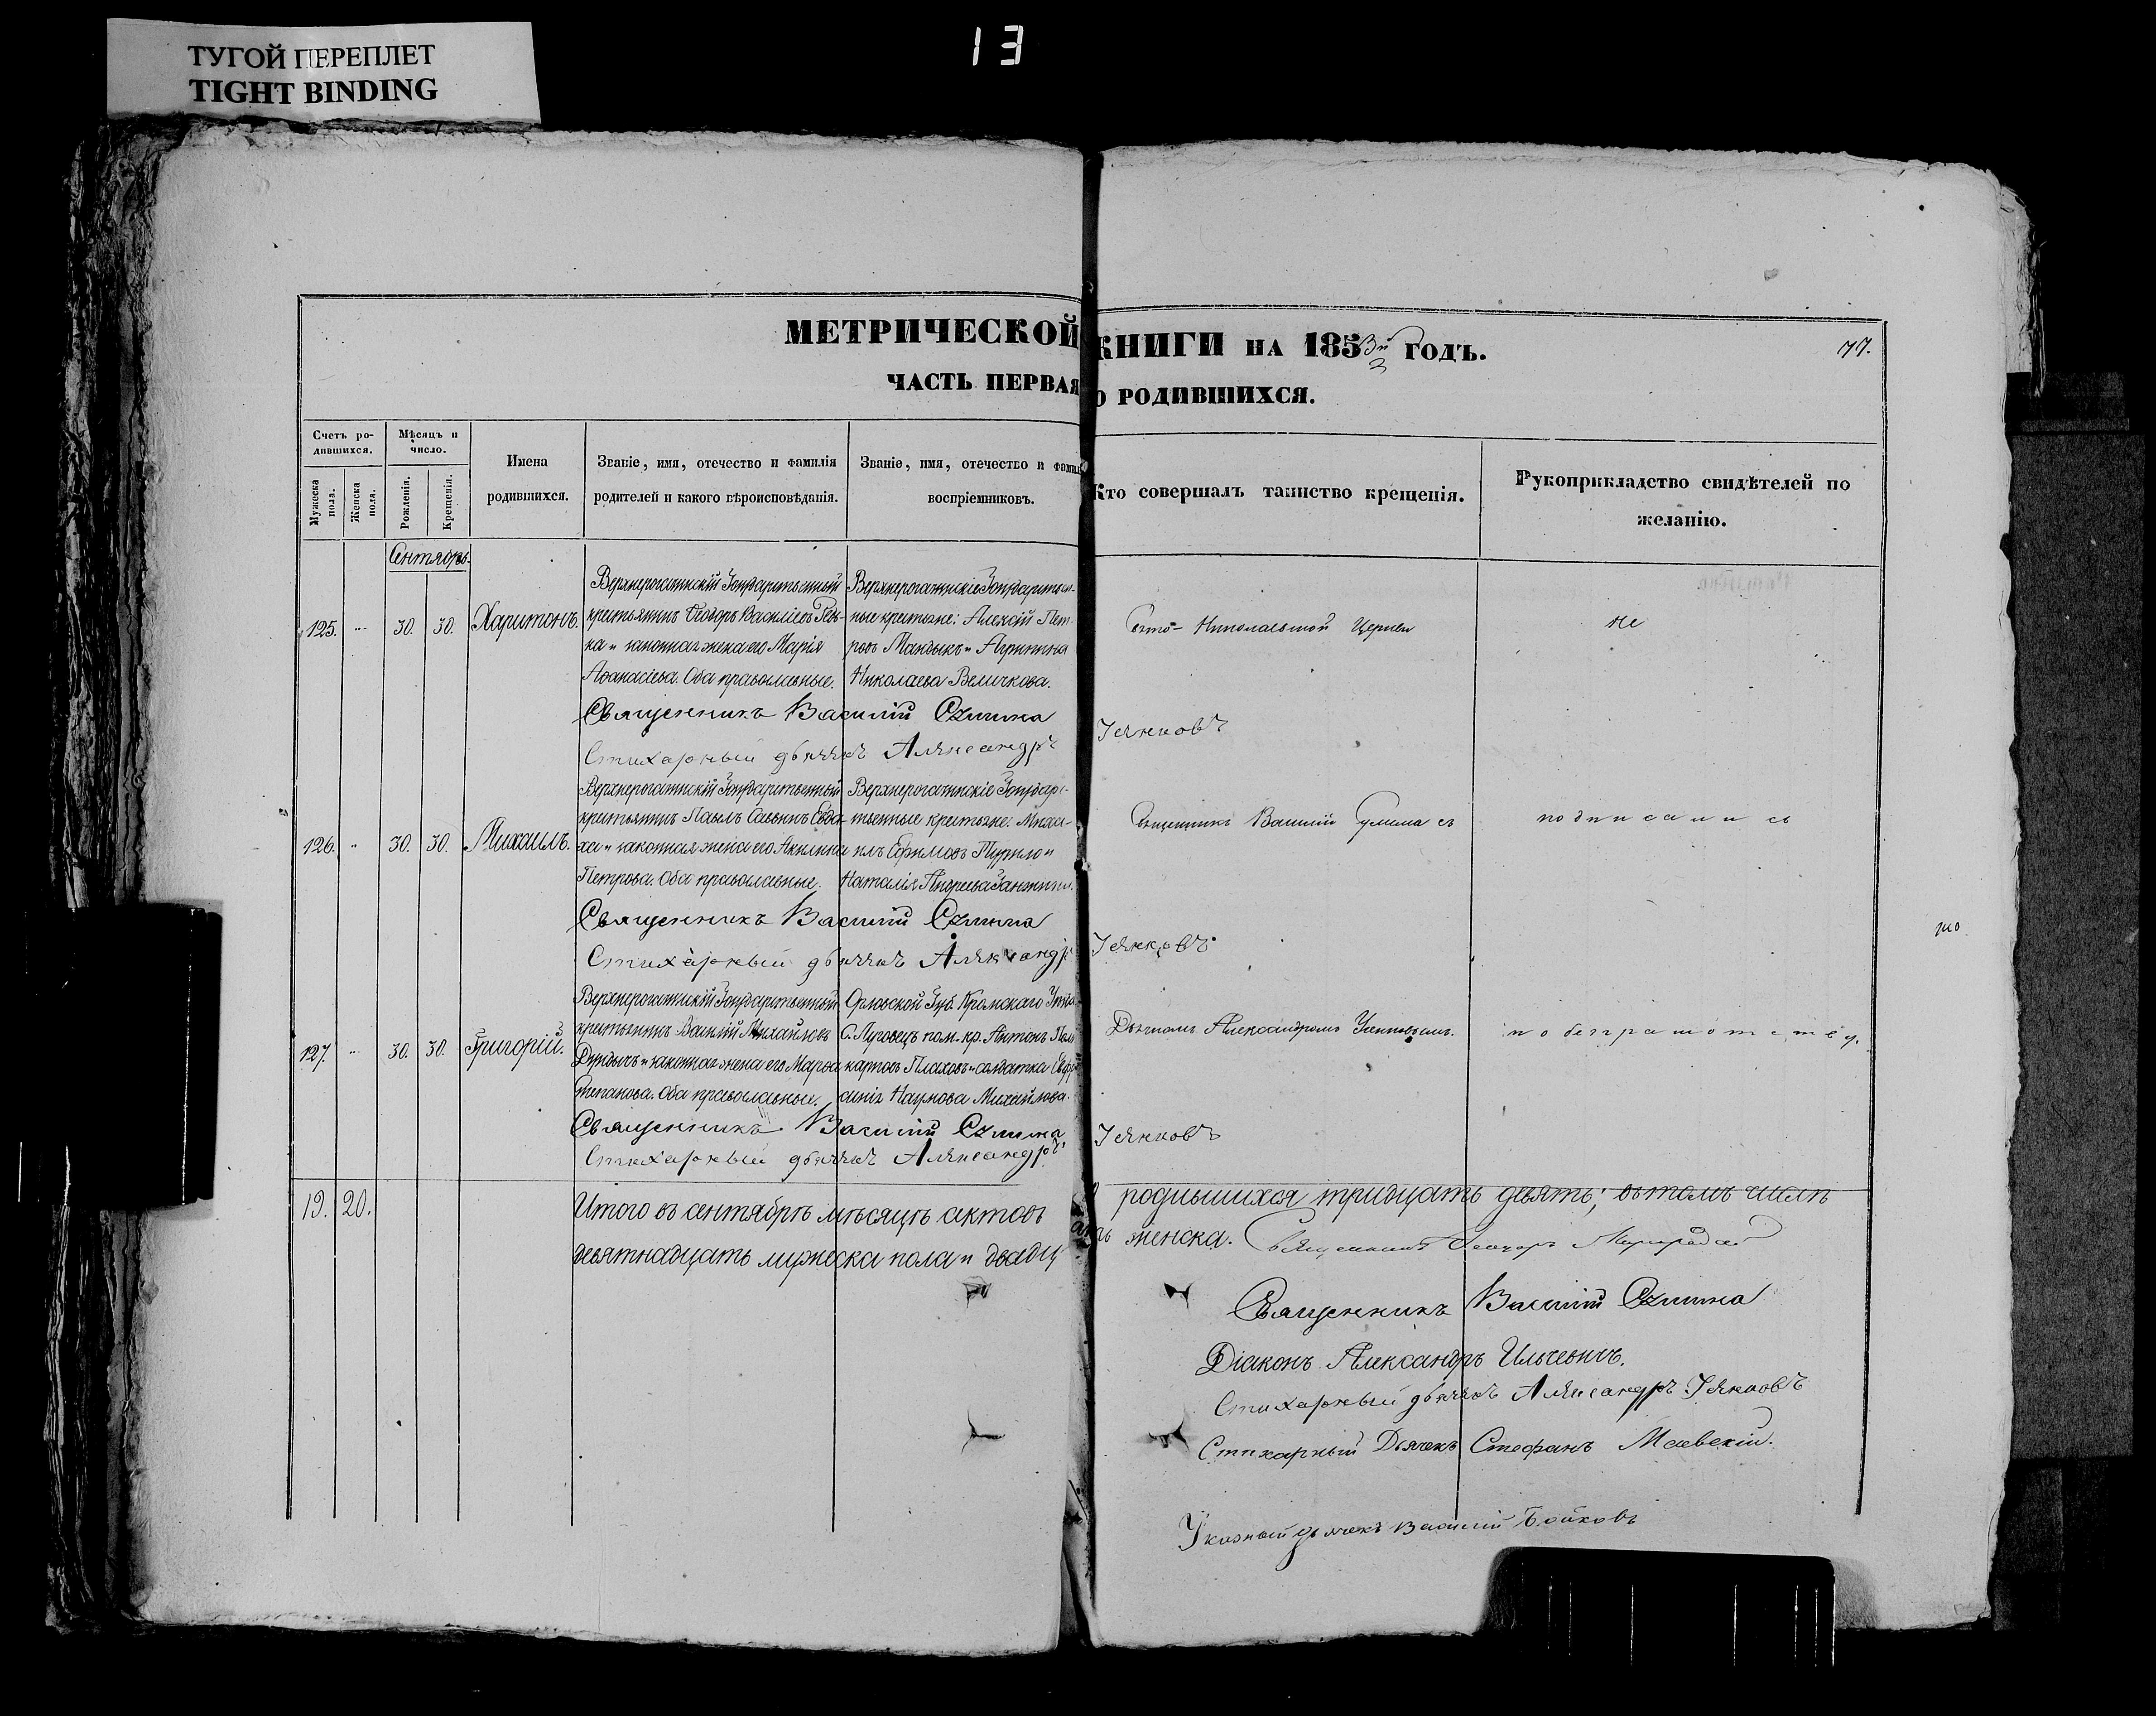 ТУГОЙ ПЕРЕПЛЕТ
TIGHT BINDING
13
МЕТРИЧЕСКОЙ КНИГИ НА 1853й ГОДЪ.
77.
ЧАСТЬ ПЕРВАЯ О РОДИВШИХСЯ.
Счетъ ро-
дившихся.
Мужеска пола.
Женска пола.
Мѣсяцъ и
число.
Рожденія.
Крещенія.
Имена
родившихся.
Званіе, имя, отечество и фамилія
родителей и какого вѣроисповѣданія.
Званіе, имя, отечество и фамилія
воспріемниковъ.
Кто совершалъ таинство крещенія.
Рукоприкладство свидѣтелей по
желанію.
Сентябрь.
125.
30. 30.
Харитонъ.
Верхнерогачикскій Государственный
крестьянинъ Ѳеодоръ Василіевъ
ка и законная жена его Марія
Аѳанасіева. Оба православные.
Верхнерогачикскіе Государствен-
ные крестьяне: Алексій Пет-
ровъ Мандыкъ и Агрипина
Николаева Величкова.
Свято-Николаевской Церкви
не
Священникъ Василій Сулима
Стихарный дьячекъ Александръ Усенковъ
126.
30. 30.
Михаилъ.
Верхнерогачикскій Государственный
крестьянинъ Павелъ Савинъ
ха и законная жена его Акилина
Петрова. Оба православные.
Верхнерогачикскіе Государс-
твенные крестьяне: Миха-
илъ Ефимовъ Турило и
Наталія Андреева
Священникъ Василій Сулима съ
подписались
Священникъ Василій Сулима
Стихарный дьячекъ Александръ Усенковъ
127.
30. 30.
Григорій.
Верхнерогачикскій Государственный
крестьянинъ Василій Михайловъ
Дундычъ и законная жена его Марѳа
Степанова. Оба православные.
Орловской Губ. Кромскаго Уѣзда
С. Луговецъ пом. кр. Антонъ Поли
карповъ Плаховъ и солдатка Евфро
синія Наумова Михайлова.
Дьячкомъ Александромъ Усенковымъ.
по безграмотству.
Священникъ Василій Сулима
Стихарный дьячекъ Александръ Усенковъ
19. 20.
Итого въ сентябрѣ мѣсяцѣ актовъ о родившихся тридцать девять; въ томъ числѣ
девятнадцать мужеска пола и двадцать женска.
Священникъ
Священникъ Василій Сулима
Діаконъ Александръ Ильчевичъ.
Стихарный дьячекъ Александръ Усенковъ
Стихарный Дьячекъ Стефанъ Маевскій.
Указный дьячекъ Василій Бойковъ